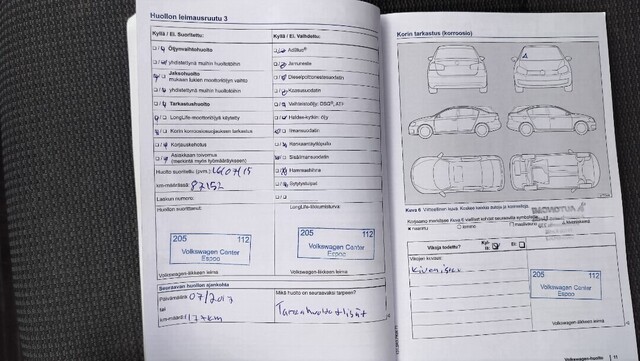 Huollon leimausruutu 3
Kyllä / Ei. Suoritettu:
Öljynvaihtohuolto
yhdistettynä muihin huoltotöihin
Jaksohuolto
mukaan lukien moottoriöljyn vaihto
yhdistettynä muihin huoltotöihin
Tarkastushuolto
LongLife-moottoriöljyä käytetty
Korin korroosiosuojauksen tarkastus
Korjauskehotus
Asiakkaan toivomus
(merkintä myös työmääräykseen)
Huolto suoritettu (pvm.) 16/07/15
km-määrässä: 87152
Laskun numero:
Huollon suorittanut:
205 112
Volkswagen Center
Espoo
Volkswagen-liikkeen leima
Kyllä / Ei. Vaihdettu:
AdBlue®
Jarruneste
Dieselpolttonestesuodatin
Kaasusuodatin
Vaihteistoöljy: DSG®, AT
Haldex-kytkin: öljy
Ilmansuodatin
Sisäilmansuodatin
Hammashihna
Sytytystulpat
LongLife-liikkumisturva:
205 112
Volkswagen Center
Espoo
Volkswagen-liikkeen leima
Seuraavan huollon ajankohta
Päivämäärä: 07/2017
tai
km-määrä: 117 tkm
Mikä huolto on seuraavaksi tarpeen?
Korin tarkastus (korroosio)
Kuva 6
Vikoja todettu?
Kyllä:
Ei:
Vikojen kuvaus:
205 112
Volkswagen Center
Espoo
Volkswagen-liikkeen leima
Volkswagen-huolto 11